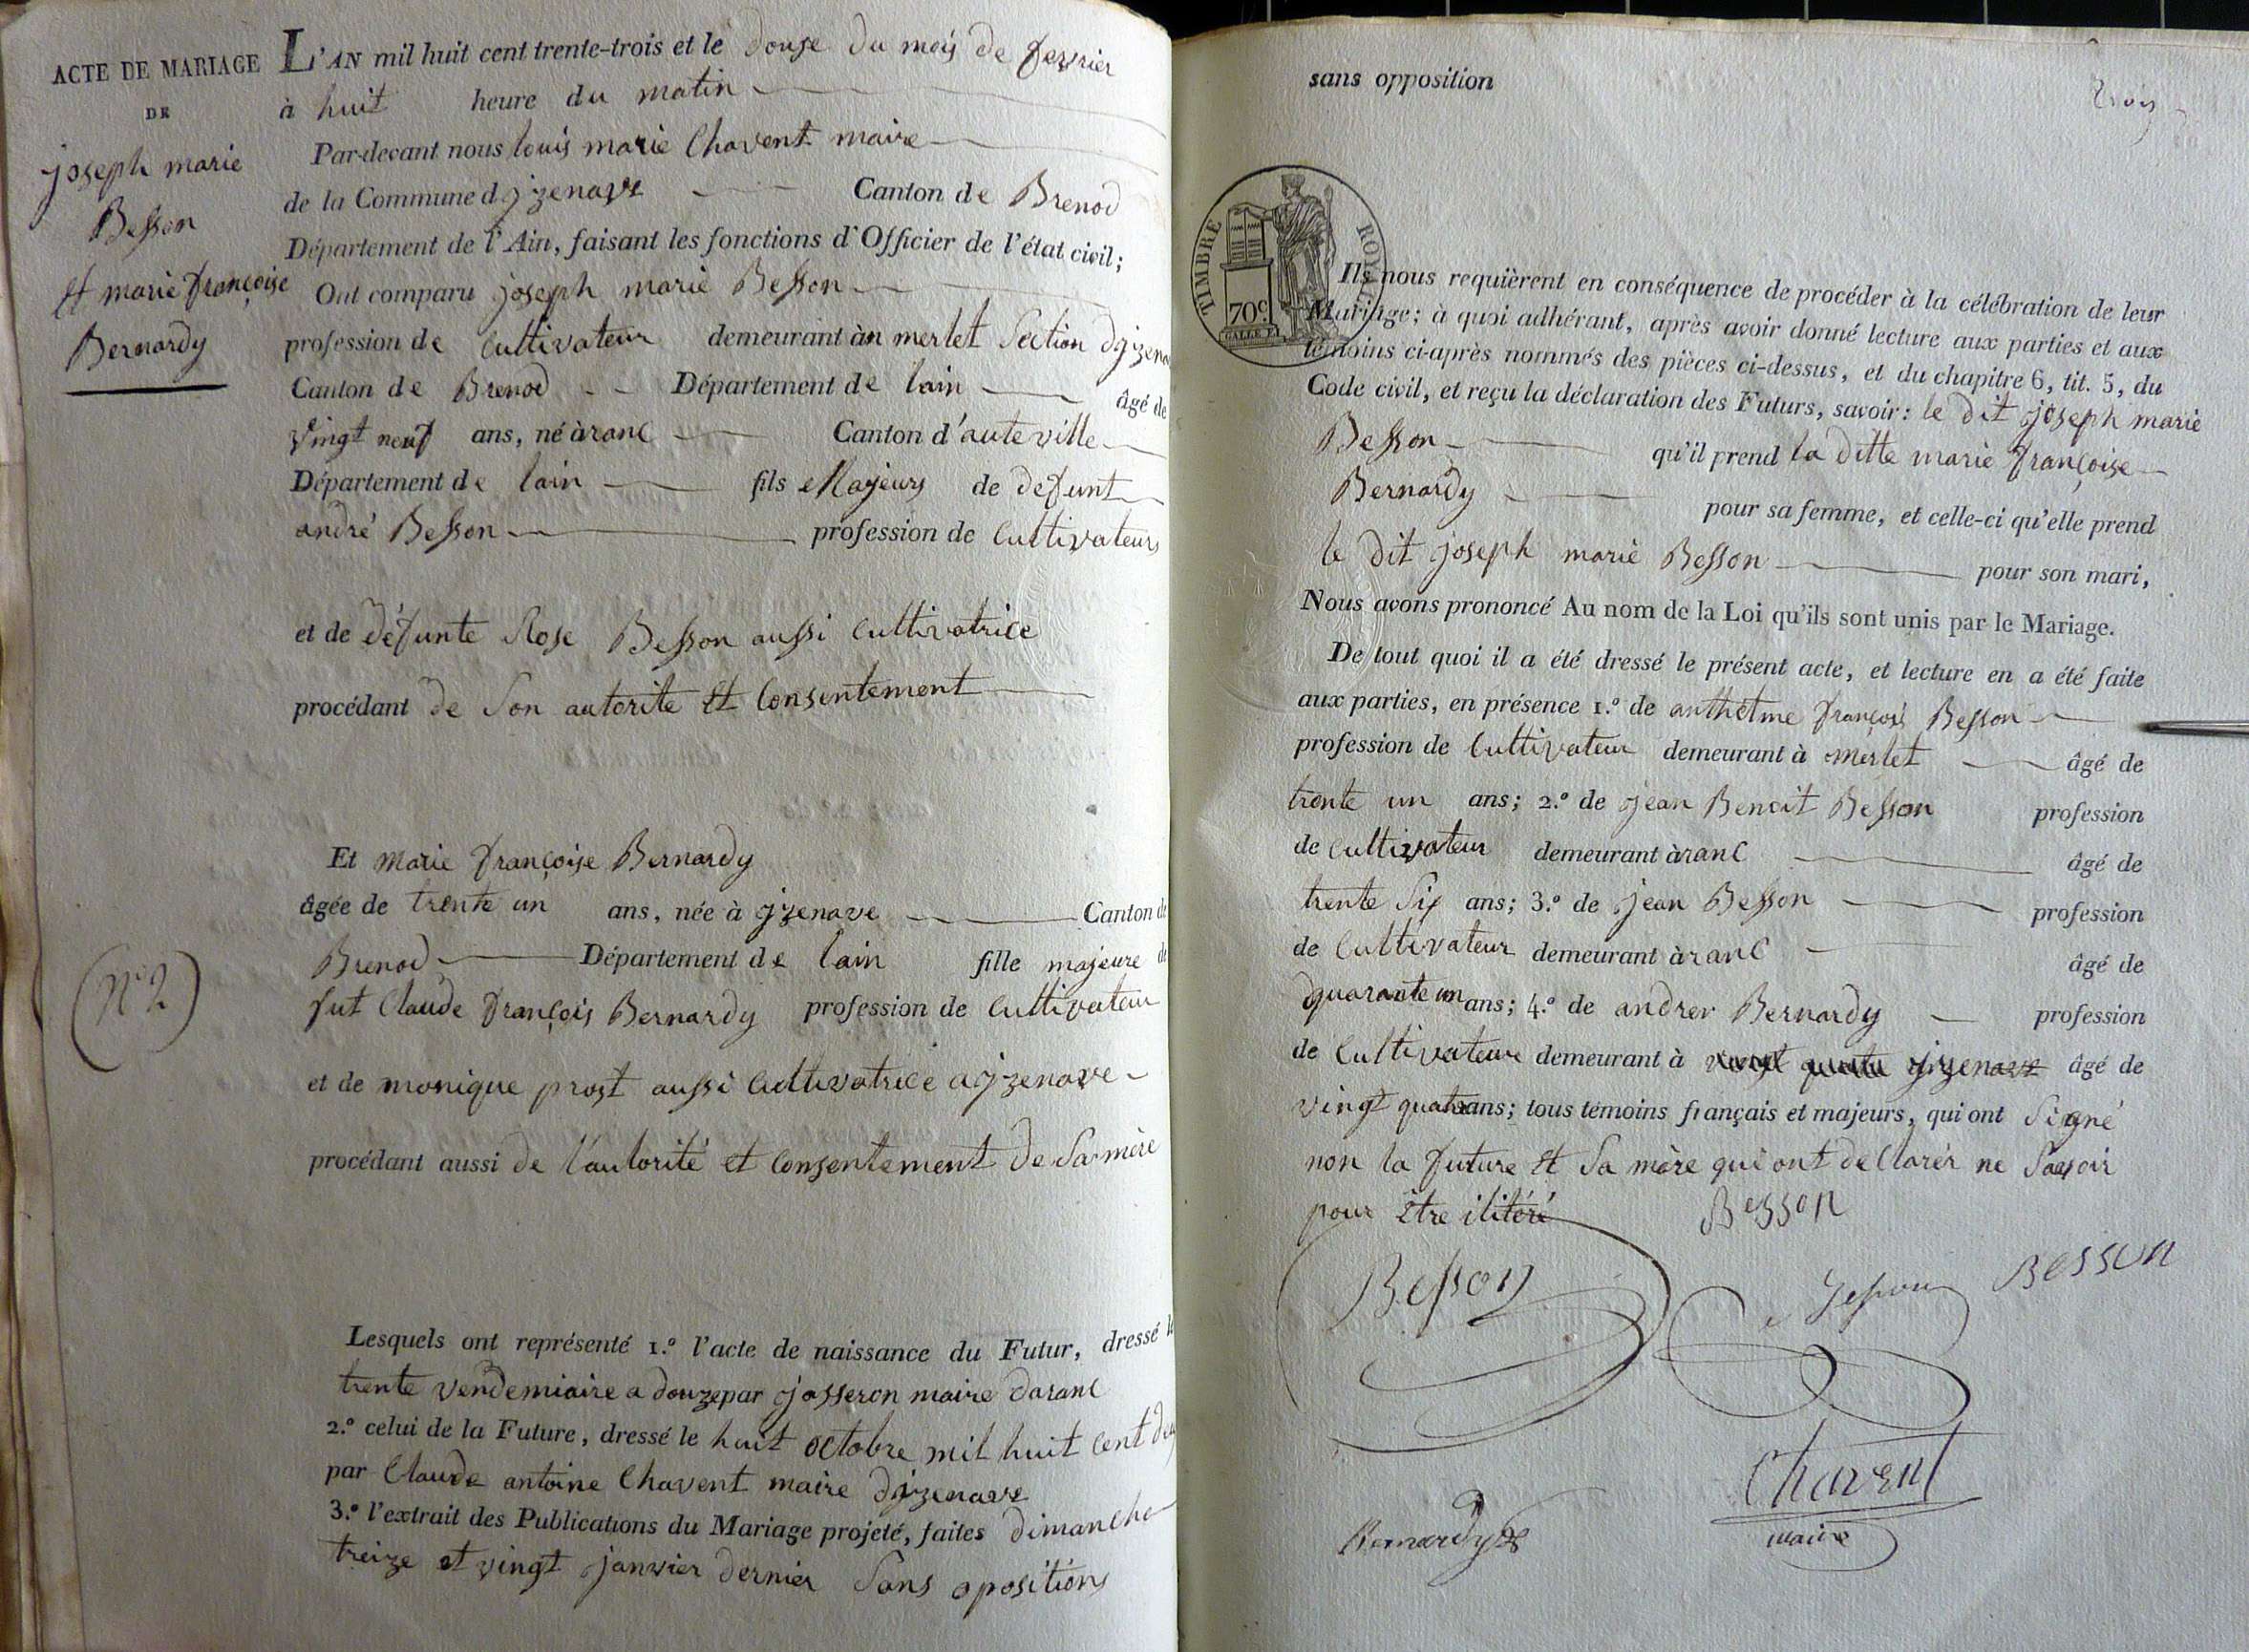 ACTE DE MARIAGE
DE
joseph marie
Besson
et marie françoise
Bernardy
(N° 2)
L'AN mil huit cent trente-trois et le douse du mois de fevrier
à huit heure du matin
Par-devant nous louis marie Chavent maire
de la Commune d jzenave Canton de Brenod
Département de l'Ain, faisant les fonctions d'Officier de l'état civil;
Ont comparu joseph marie Besson
profession de Cultivateur demeurant àn merlet Section djzena
Canton de Brenod Département de lain âgé de
vingt neuf ans, né àranc Canton d'auteville
Département de lain fils Majeurs de defunt
andré Besson profession de Cultivateurs
et de défunte Rose Besson aussi Cultivatrice
procédant de Son autorite et Consentement
Et Marie françoise Bernardy
âgée de trente un ans, née à jzenave Canton de
Brenod Département de lain fille majeure de
fut Claude françois Bernardy profession de Cultivateur
et de monique prost aussi Cultivatrice a jzenave
procédant aussi de l'autorité et Consentement de Sa mère
Lesquels ont représenté 1.° l'acte de naissance du Futur, dressé le
trente vendemiaire a douze par josseron maire daranc
2.° celui de la Future, dressé le huit octobre mil huit Cent deux
par Claude antoine Chavent maire djzenave
3.° l'extrait des Publications du Mariage projeté, faites dimanche
treize et vingt janvier dernier Sans opositions
sans opposition
trois
TIMBRE ROYAL
70c.
Ils nous requièrent en conséquence de procéder à la célébration de leur
Mariage; à quoi adhérant, après avoir donné lecture aux parties et aux
témoins ci-après nommés des pièces ci-dessus, et du chapitre 6, tit. 5, du
Code civil, et reçu la déclaration des Futurs, savoir: le dit joseph marie
Besson qu'il prend la ditte marie françoise
Bernardy pour sa femme, et celle-ci qu'elle prend
le dit joseph marie Besson pour son mari,
Nous avons prononcé Au nom de la Loi qu'ils sont unis par le Mariage.
De tout quoi il a été dressé le présent acte, et lecture en a été faite
aux parties, en présence 1.° de anthelme françois Besson
profession de Cultivateur demeurant à merlet âgé de
trente un ans; 2.° de jean Benoit Besson profession
de Cultivateur demeurant àranc âgé de
trente Six ans; 3.° de jean Besson profession
de Cultivateur demeurant àranc âgé de
quarante un ans; 4.° de andrer Bernardy profession
de Cultivateur demeurant à jzenave âgé de
vingt quatre ans; tous témoins français et majeurs, qui ont Signé
non la future et Sa mère qui ont declarér ne Savoir
pour être ilitéré
Besson
Besson
Besson
Chavent
maire
Bernardy